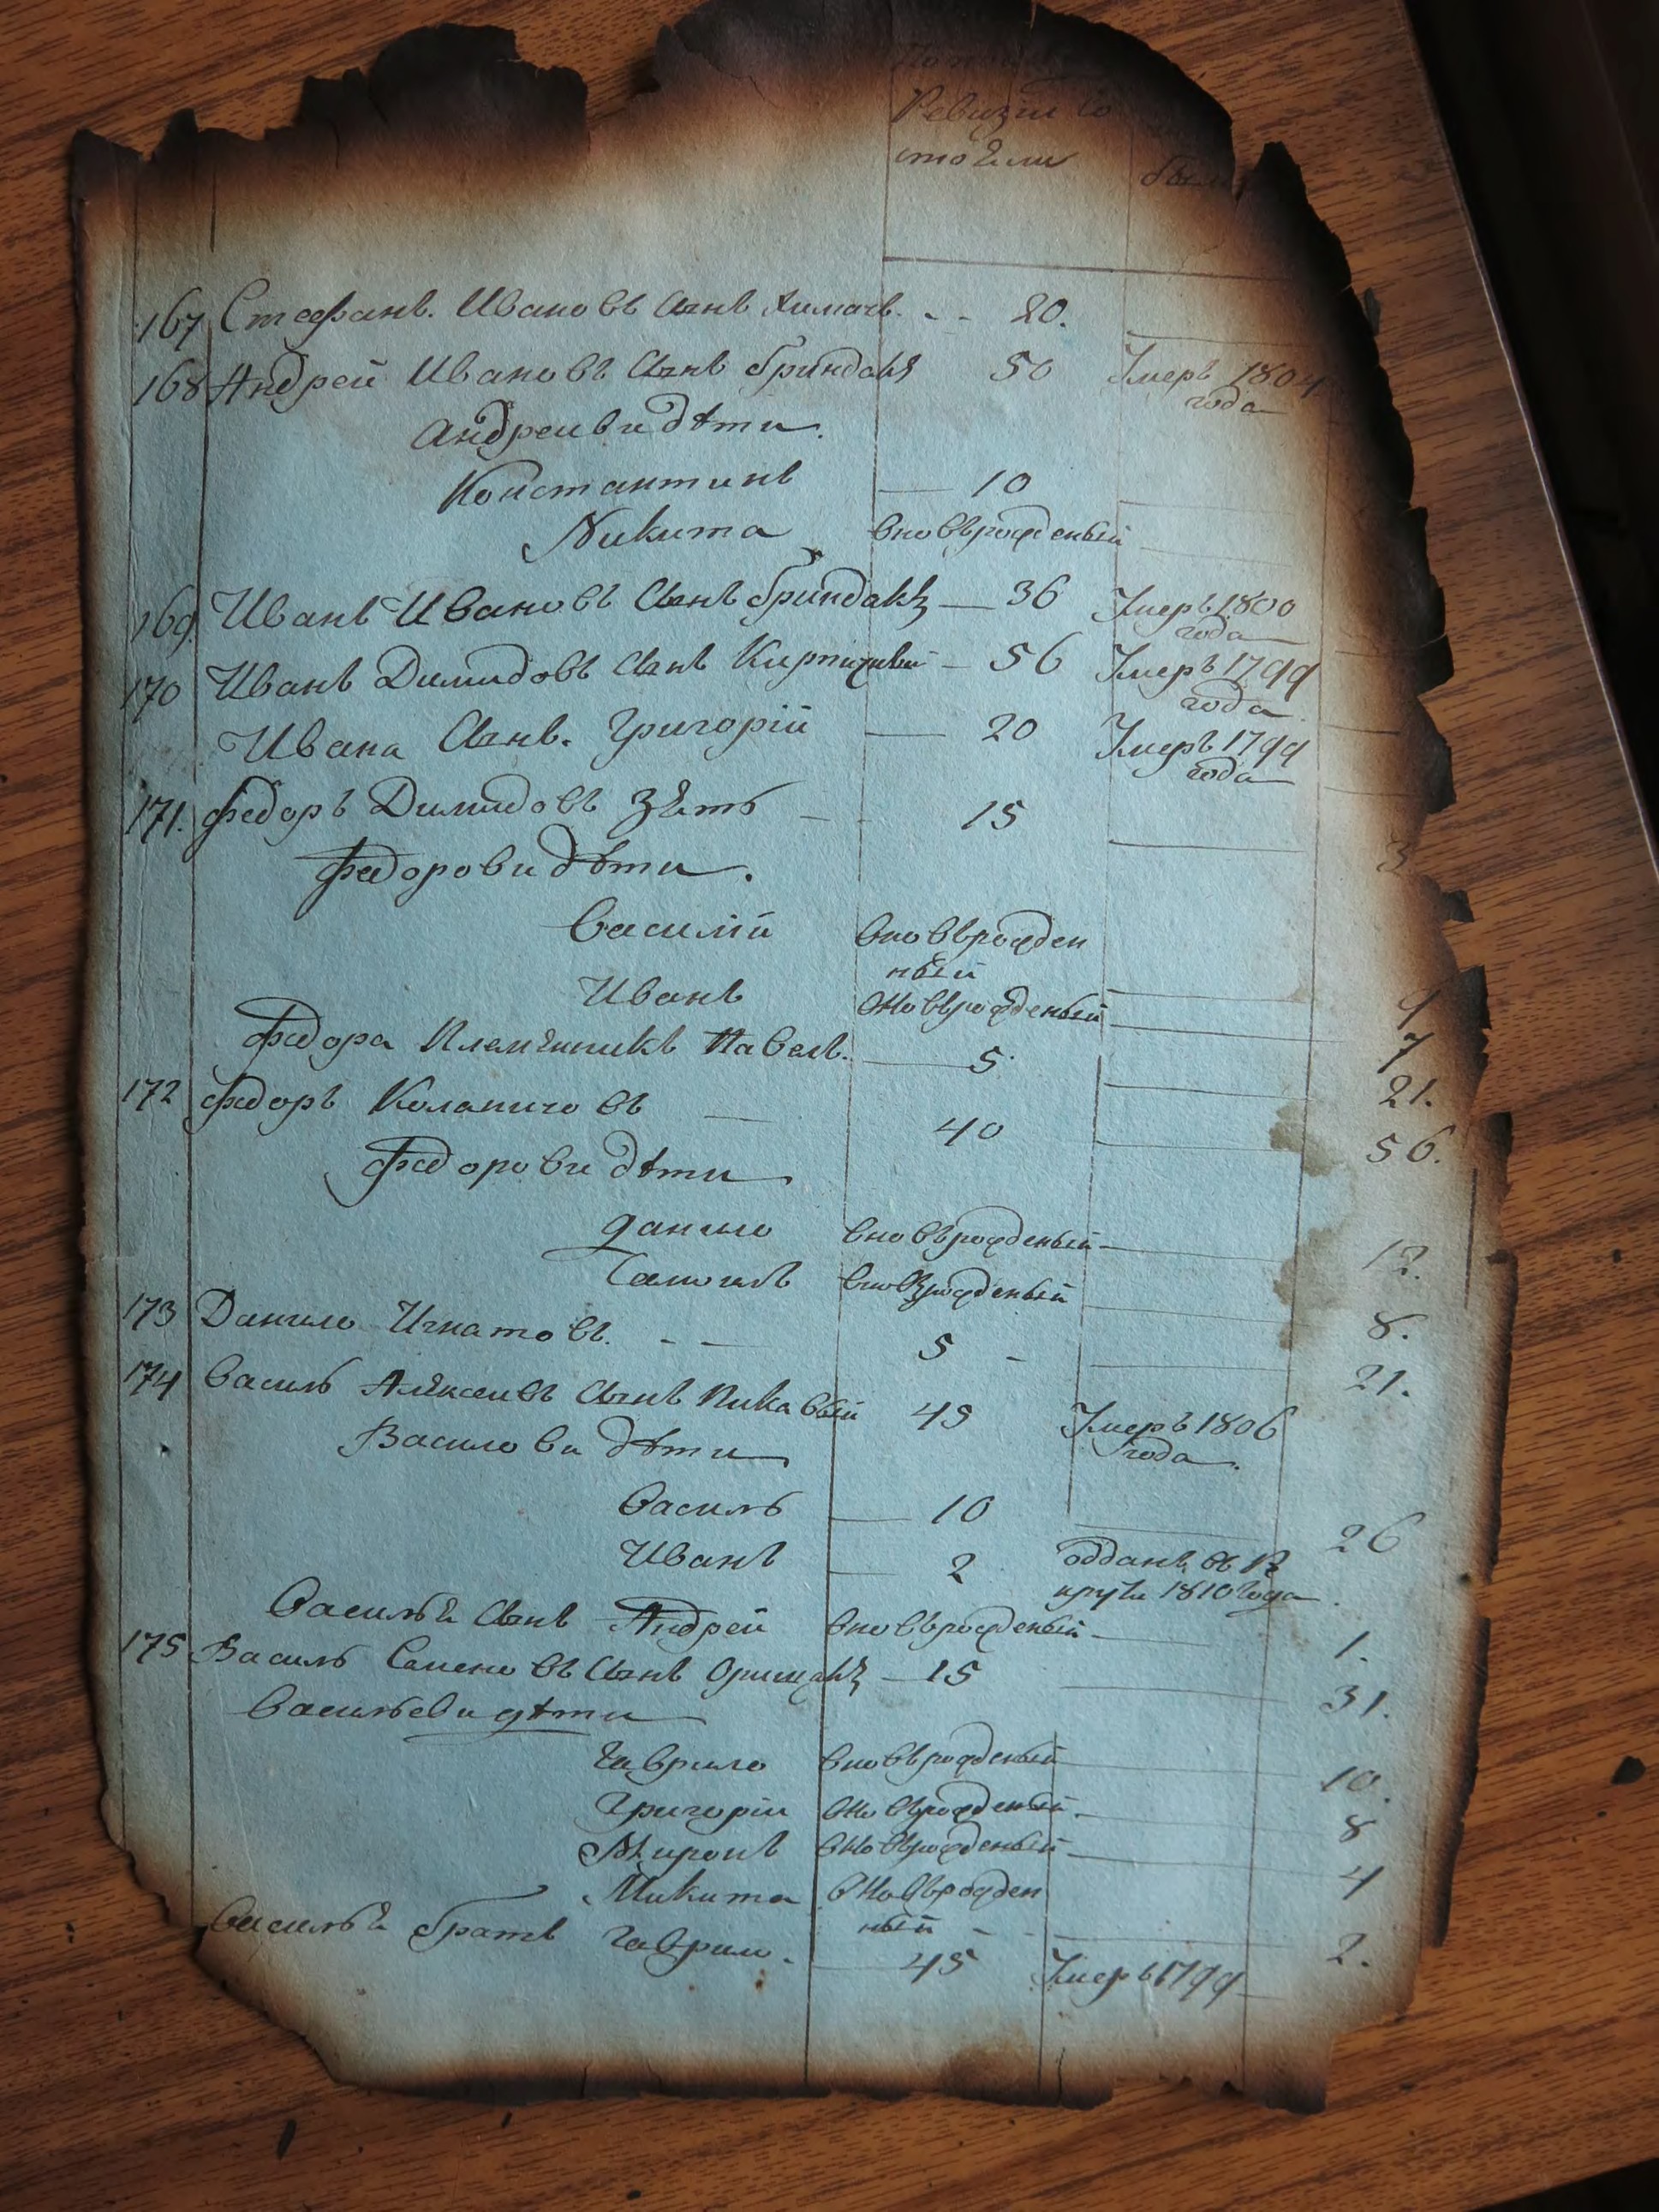 Ревизіи со
стоѣли
167 Стефанъ. Ивановъ Сынъ - - 20.
168 Андрей Ивановъ Сынъ Гриндакъ 50 Умеръ 1804
года
Андреиви дѣти.
Константинъ — 10
Никита вновърожденый
169. Иванъ Ивановъ Сынъ Гриндакъ — 36 Умеръ 1800
года
170 Иванъ Димидовъ Сынъ — 56 Умеръ 1799
года
Ивана Сынъ. Григорій — 20 Умеръ 1799
года
171. Федоръ Димидовъ Зѣть — 15
Федорови дѣти. 3
Василій вновърожден
ный
Иванъ вновърожденый 7
Федора племѣникъ Павелъ. — 5. 21.
172 Федоръ — 40 56.
Федорови дѣти
Данило вновърожденый — 12.
вновърожденый 8.
173 Данило Игнатовъ. - — 5 - 21.
174 Василь Алѣксеивъ Сынъ Пикавый 45 Умеръ 1806
года.
Василови дѣти
Василь — 10 26
Иванъ — 2 отданъ въ рѣ
круты 1810 года.
Васильѣ Сынъ Андрей вновърожденый — 1.
175 Василь Семеновъ Сынъ — 15 31.
Васильеви дѣти
Гаврило вновърожденый 10.
Григорій вновърожденый. 8
Миронъ вновърожденый — 4
Микита вновърожден
ный - 2.
Васильѣ братъ Гаврило. — 45 Умеръ 1799